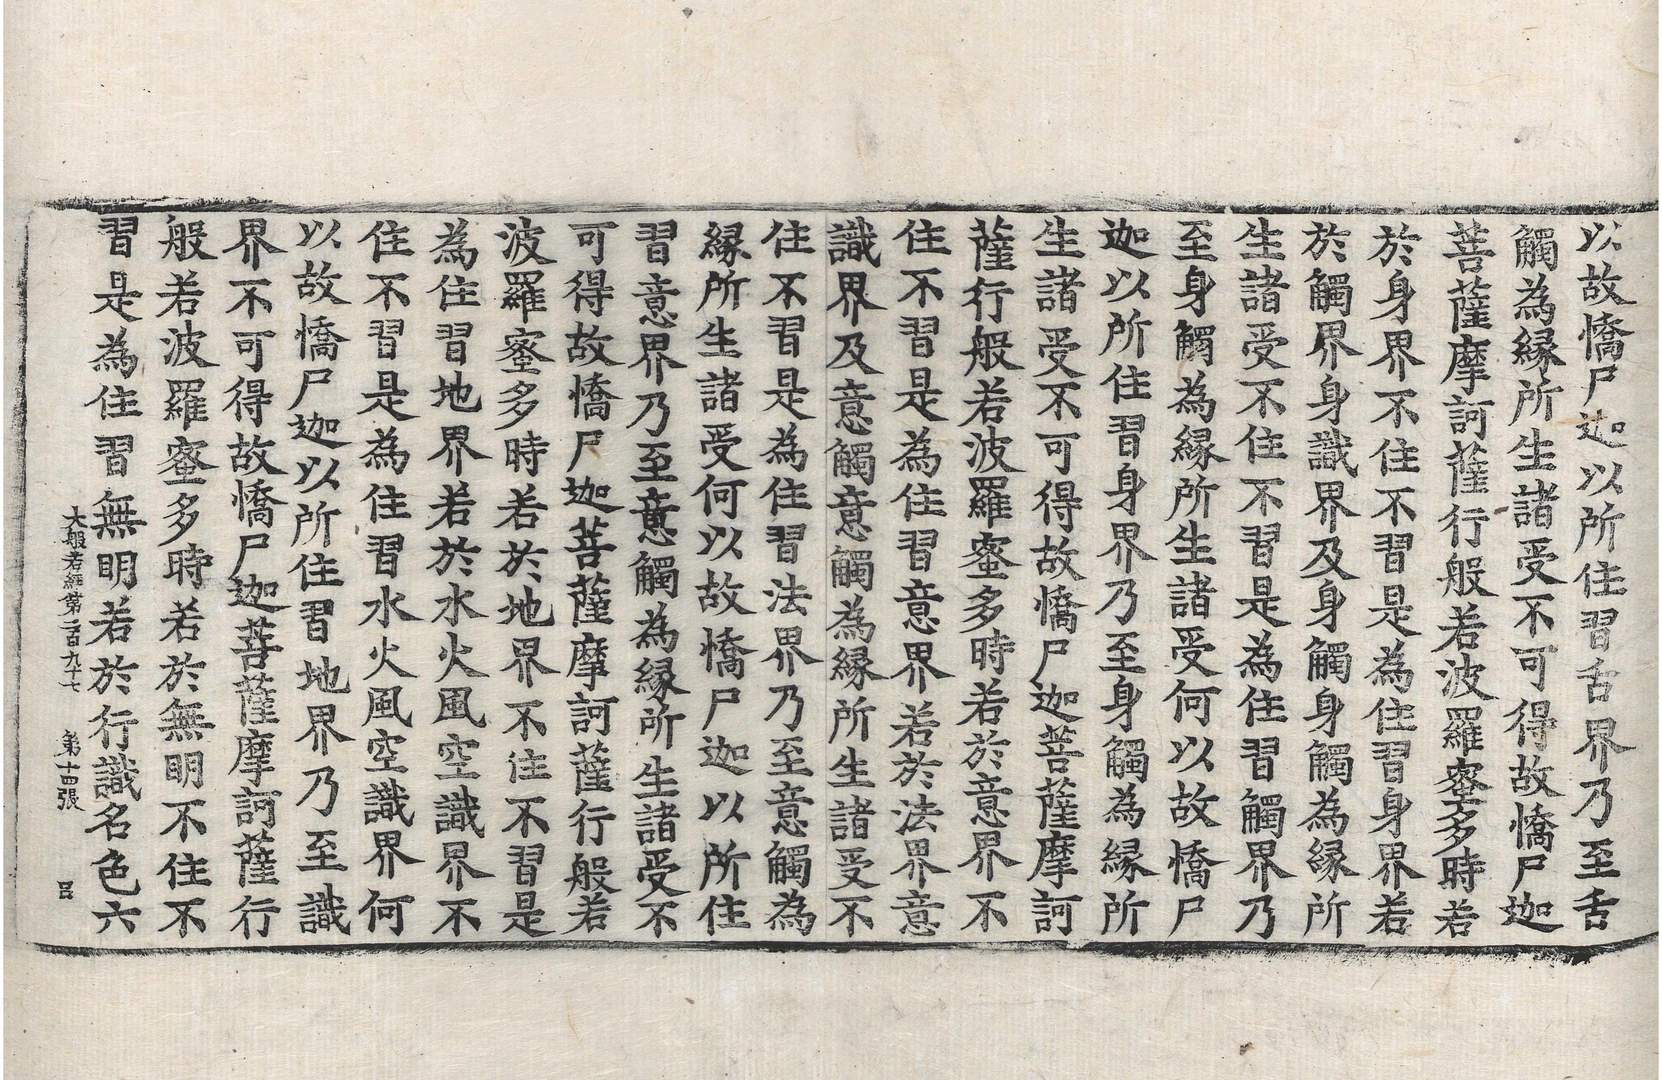 以故憍尸迦以所住習舌界乃至舌
觸為縁所生諸受不可得故憍尸迦
菩薩摩訶薩行般若波羅蜜多時若
於身界不住不習是為住習身界若
於觸界身識界及身觸身觸為縁所
生諸受不住不習是為住習觸界乃
至身觸為縁所生諸受何以故憍尸
迦以所住習身界乃至身觸為縁所
生諸受不可得故憍尸迦菩薩摩訶
薩行般若波羅蜜多時若於意界不
住不習是為住習意界若於法界意
識界及意觸意觸為縁所生諸受不
住不習是為住習法界乃至意觸為
縁所生諸受何以故憍尸迦以所住
習意界乃至意觸為縁所生諸受不
可得故憍尸迦菩薩摩訶薩行般若
波羅蜜多時若於地界不住不習是
為住習地界若於水火風空識界不
住不習是為住習水火風空識界何
以故憍尸迦以所住習地界乃至識
界不可得故憍尸迦菩薩摩訶薩行
般若波羅蜜多時若於無明不住不
習是為住習無明若於行識名色六
大般若經第二百九十七 第十四張 呂